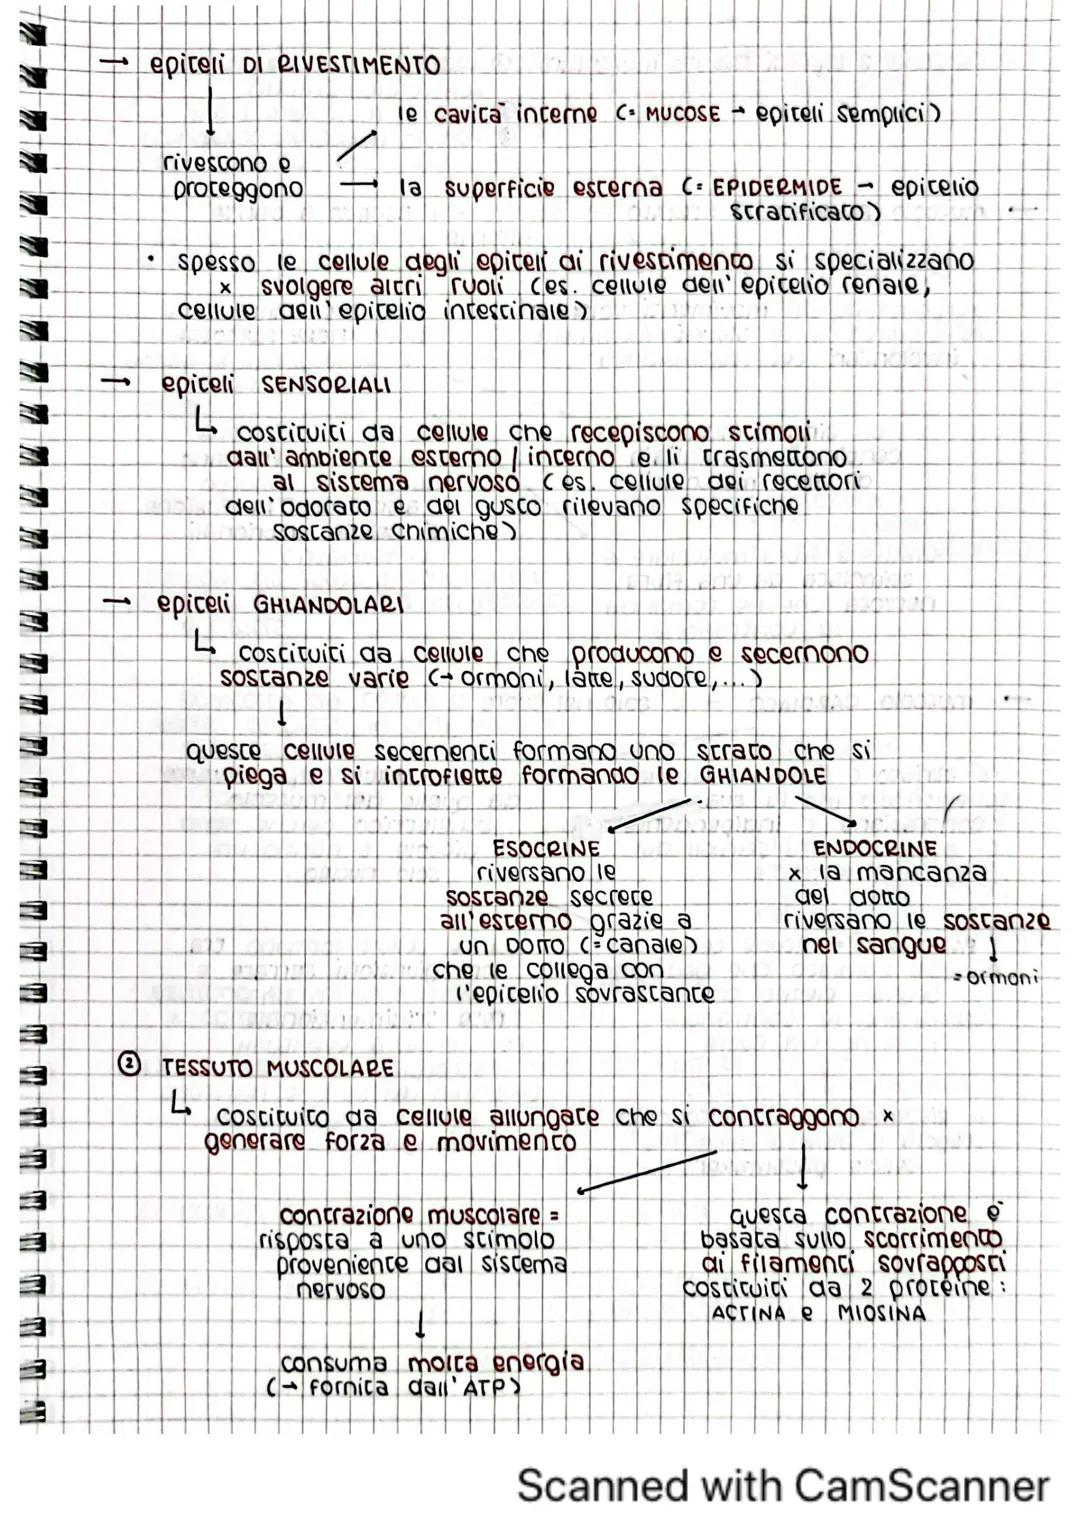 → epiteli DI RIVESTIMENTO
le cavità interne (= MUCOSE → epiteli semplici)
rivestono e
proteggono → la superficie esterna (= EPIDERMIDE → epitelio
stratificato)
• spesso le cellule degli epiteli di rivestimento si specializzano
x svolgere altri ruoli (es. cellule dell'epitelio renale,
cellule dell'epitelio intestinale)
→ epiteli SENSORIALI
↳ costituiti da cellule che recepiscono stimoli
dall'ambiente esterno / interno e li trasmettono
al sistema nervoso (es. cellule dei recettori
dell'odorato e del gusto rilevano specifiche
sostanze chimiche)
→ epiteli GHIANDOLARI
↳ costituiti da cellule che producono e secernono
sostanze varie (→ ormoni, latte, sudore, ...)
↓
queste cellule secernenti formano uno strato che si
piega e si introflette formando le GHIANDOLE
ESOCRINE
riversano le
sostanze secrete
all'esterno grazie a
un DOTTO (= canale)
che le collega con
l'epitelio sovrastante
ENDOCRINE
x la mancanza
del dotto
riversano le sostanze
nel sangue ↓
= ormoni
② TESSUTO MUSCOLARE
↳ costituito da cellule allungate che si contraggono x
generare forza e movimento
contrazione muscolare =
risposta a uno stimolo
proveniente dal sistema
nervoso
↓
consuma molta energia
(→ fornita dall'ATP)
questa contrazione è
basata sullo scorrimento
di filamenti sovrapposti
costituiti da 2 proteine :
ACTINA e MIOSINA
Scanned with CamScanner